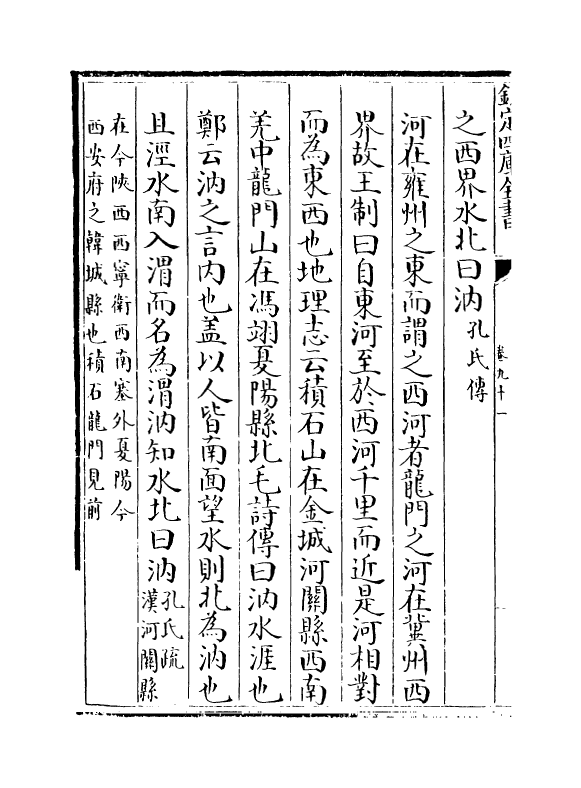 欽定四庫全書
卷九十一
之西界水北曰汭孔氏傳
河在雍州之東而謂之西河者龍門之河在冀州西
界故王制曰自東河至於西河千里而近是河相對
而為東西也地理志云積石山在金城河關縣西南
羌中龍門山在馮翊夏陽縣北毛詩傳曰汭水涯也
鄭云汭之言内也盖以人皆南面望水則北為汭也
且涇水南入渭而名為渭汭知水北曰汭孔氏疏
漢河關縣
在今陜西西寧衛西南塞外夏陽今
西安府之韓城縣也積石龍門見前